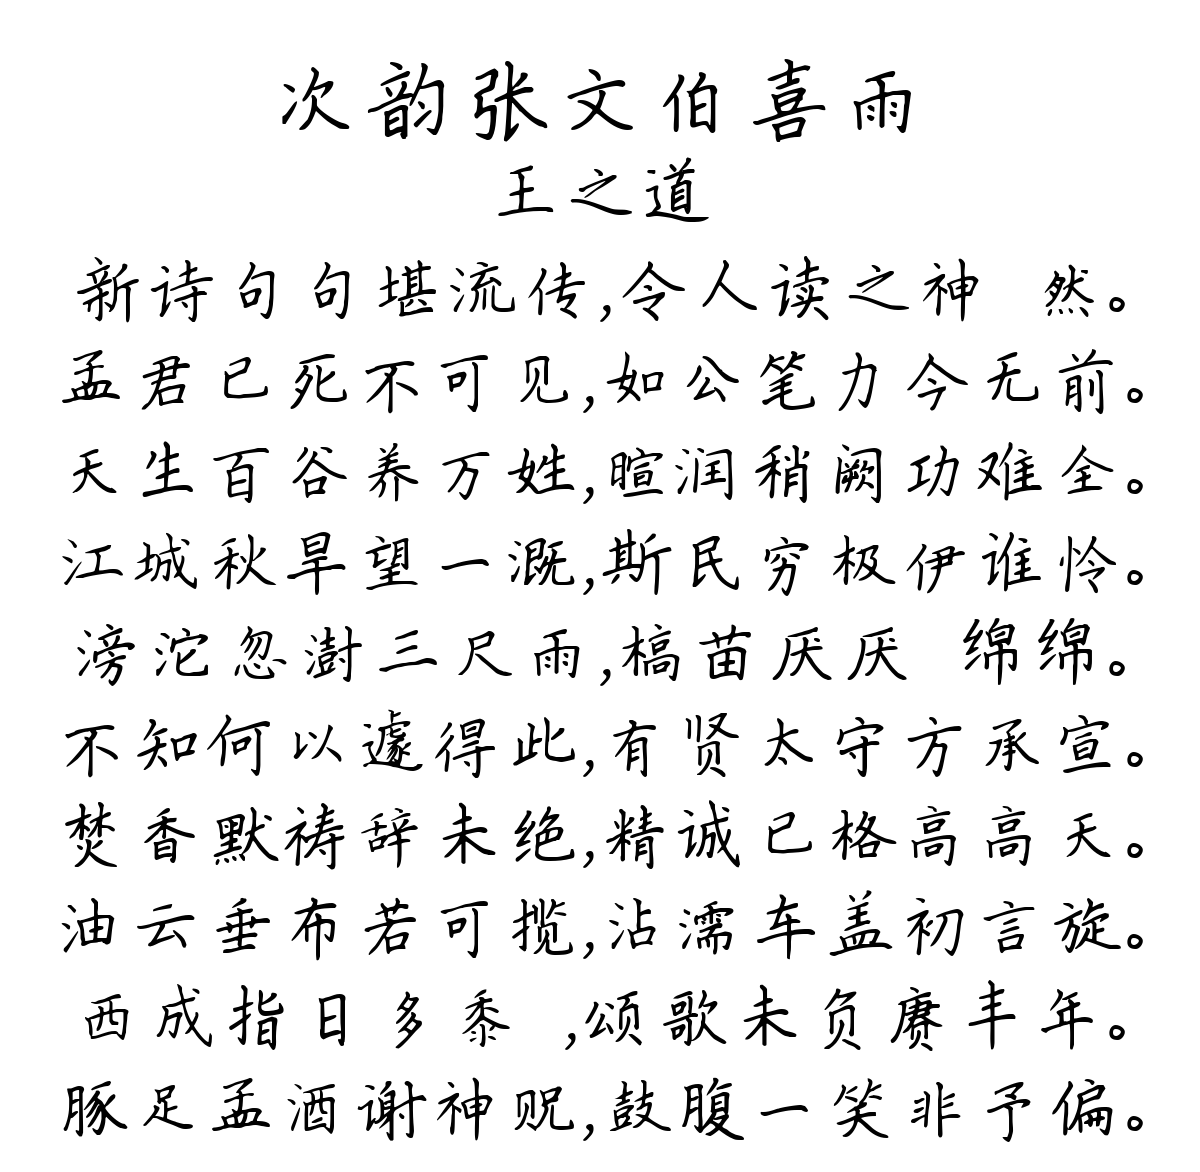 次韵张文伯喜雨
王之道
新诗句句堪流传,令人读之神 然。
孟君已死不可见,如公笔力今无前。
天生百谷养万姓,暄润稍阙功难全。
江城秋旱望一溉,斯民穷极伊谁怜。
滂沱忽澍三尺雨,槁苗厌厌 绵绵。
不知何以遽得此,有贤太守方承宣。
焚香默祷辞未绝,精诚已格高高天。
油云垂布若可揽,沾濡车盖初言旋。
西成指日多黍 ,颂歌未负赓丰年。
豚足盂酒谢神贶,鼓腹一笑非予偏。